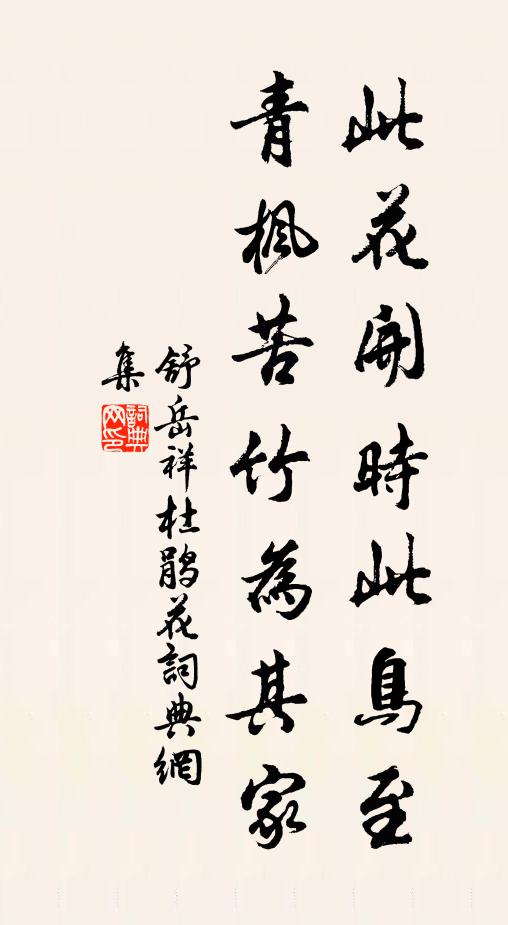 此花開時此鳥至
青楓苦竹為其家
舒岳祥杜鵑花詞典網
集
詞典网印